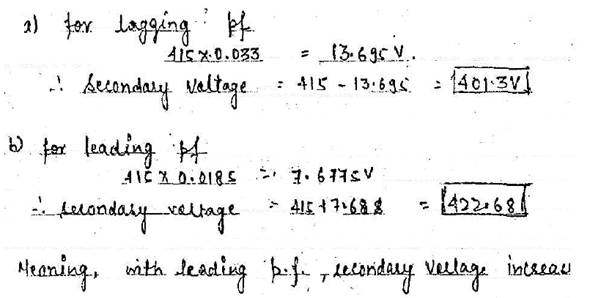 a) for lagging pf
415 x 0.033 = 13.695 V.
∴ Secondary Voltage = 415 - 13.695 = 401.3V
b) for leading pf
415 x 0.0185 = 7.6775V
∴ secondary voltage = 415 + 7.688 = 422.68
Meaning, with leading p.f., secondary Voltage increas